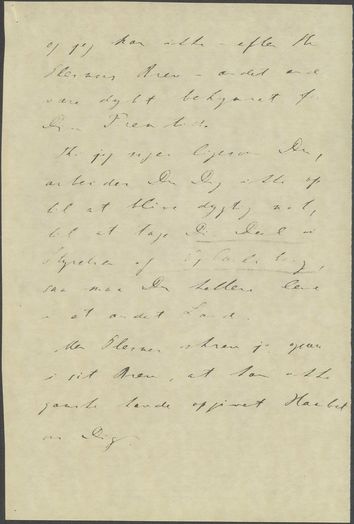 og jeg kan ikke - efter Hr
Plesners Brev - andet end
være dybt bekymret f.
Din Fremtid.
Thi jeg siger ligesom Du,
arbeider Du Dig ikke op
til at blive dygtig nok,
til at tage Din Deel i
Styrelsen af Ny Carlsberg,
saa maa Du hellere leve
i et andet Land.
Men Plesner skrev jo ogsaa
i sit Brev, at han ikke
ganske havde opgivet Haabet
om Dig.